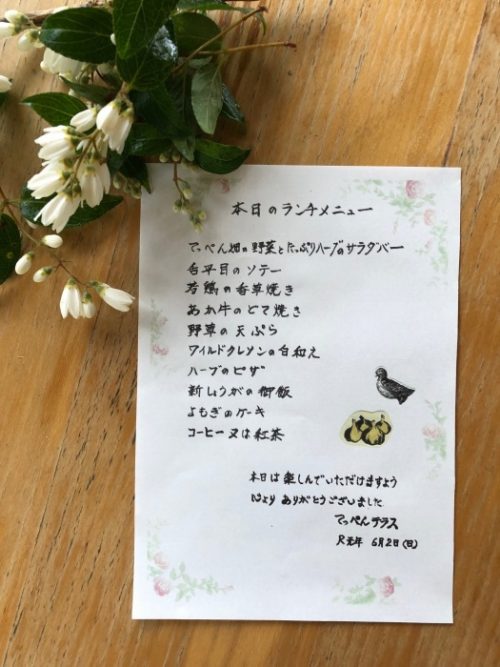 本日のランチメニュー
てっぺん畑の野菜とたっぷりハーブのサラダバー
舌平目のソテー
若鶏の香草焼き
あか牛のどて焼き
野草の天ぷら
ワイルドクレソンの白和え
ハーブのピザ
新しょうがの御飯
よもぎのケーキ
コーヒー又は紅茶
本日は楽しんでいただけますよう
心より ありがとうございました
てっぺんテラス
R元年 6月2日(日)